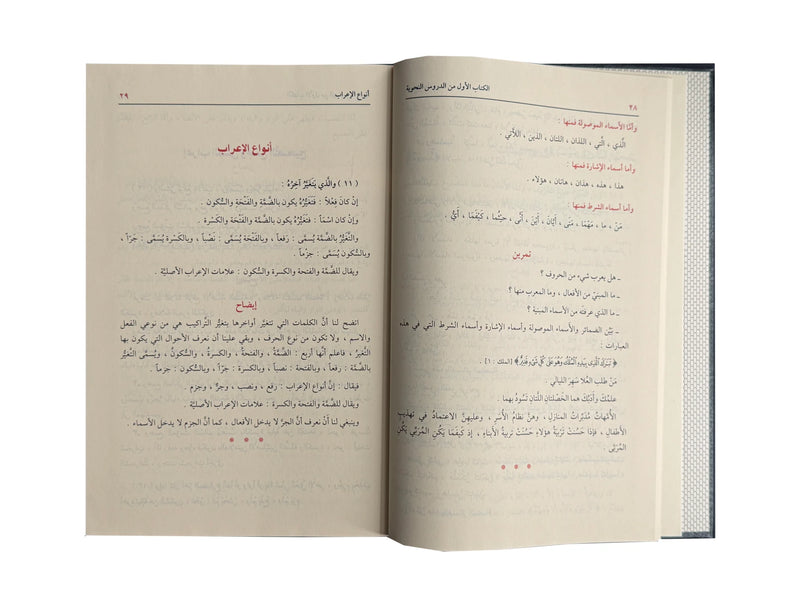 ٢٨
الكتاب الأول من الدروس النحوية
وأمَّا الأسماء الموصولة فمنها :
الَّذي ، الَّتي ، اللذان ، اللتان ، الذين ، اللاَّتي .
وأما أسماء الإشارة فمنها :
هذا ، هذه ، هذان ، هاتان ، هؤلاء .
وأما أسماء الشرط فمنها :
مَنْ ، ما ، مَهْمَا ، مَتَى ، أَيَّانَ ، أَيْنَ ، أَنَّى ، حيثُما ، كَيْفَمَا ، أَيُّ .
تمرين
ـ هل يعرب شيء من الحروف ؟
ـ ما المبنيّ من الأفعال ، وما المعرب منها ؟
ـ ما الذي عرفته من الأسماء المبنية ؟
ـ بَيِّن الضمائر والأسماء الموصولة وأسماء الإشارة وأسماء الشرط التي في هذه
العبارات :
﴿ تَبَٰرَكَ ٱلَّذِى بِيَدِهِ ٱلْمُلْكُ وَهُوَ عَلَىٰ كُلِّ شَىْءٍ قَدِيرٌ ﴾ [الملك : ١] .
مَنْ طلب العُلا سَهِرَ الليالي .
علمُكَ وأدَبُكَ هما الخَصْلتانِ اللَّتان تَسُودُ بهما .
الأُمَّهاتُ مُدَبِّراتُ المنازلِ ، وهنَّ نظامُ الأُسَرِ ، وعليهنَّ الاعتمادُ في تهذيبِ
الأطفالِ ، فإذا حَسُنَتْ تَرْبِيَةُ هؤلاءِ حَسُنَتْ تربيةُ الأبناءِ ، إذ كَيفَمَا يَكُنِ المُرَبِّي يَكُنِ
المُرَبَّى .
أنواع الإعراب
٢٩
أنواع الإعراب
( ١١ ) والَّذي يَتَغَيَّرُ آخِرُهُ :
إنْ كانَ فِعْلاً : فَتَغَيُّرُهُ يكون بالضَّمَّة والفَتْحَةِ والسُّكون .
وإن كان اسْمَاً : فتَغَيُّرُهُ يكون بالضَّمَّة والفَتْحَة والكَسْرة .
والتَّغَيُّرُ بالضَّمَّة يُسمَّى : رَفعاً ، وبالفَتْحَة يُسمَّى : نَصْباً ، وبالكَسْرة يُسمَّى : جَرَّاً ،
وبالسُّكون يُسمَّى : جزْماً .
ويقال للضَّمَّة والفتحة والكسرة والسُّكون : علامات الإعراب الأصليَّة .
إيضاح
اتضح لنا أنَّ الكلمات التي تتغيَّر أواخرها بتغيُّر التَّراكيب هي من نوعي الفعل
والاسم ، ولا تكون من نوع الحرف ، وبقي علينا أن نعرف الأحوال التي يكون بها
التَّغيُّر ، فاعلم أنَّها أربع : الضَّمَّة ، والفتحة ، والكسرةُ ، والسُّكونُ ، ويُسمَّى التَّغيُّر
بالضَّمَّة : رفعاً ، وبالفتحة : نصباً ، وبالكسرة : جَرَّاً ، وبالسُّكون : جزماً .
فيقال : إنَّ أنواع الإعراب : رَفع ، ونصب ، وجرٌّ ، وجزم .
ويقال للضَّمَّة والفتحة والكسرة : علامات الإعراب الأصليَّة .
وينبغي لنا أنْ نعرف أنَّ الجرَّ لا يدخل الأفعال ، كما أنَّ الجزم لا يدخل الأسماء .